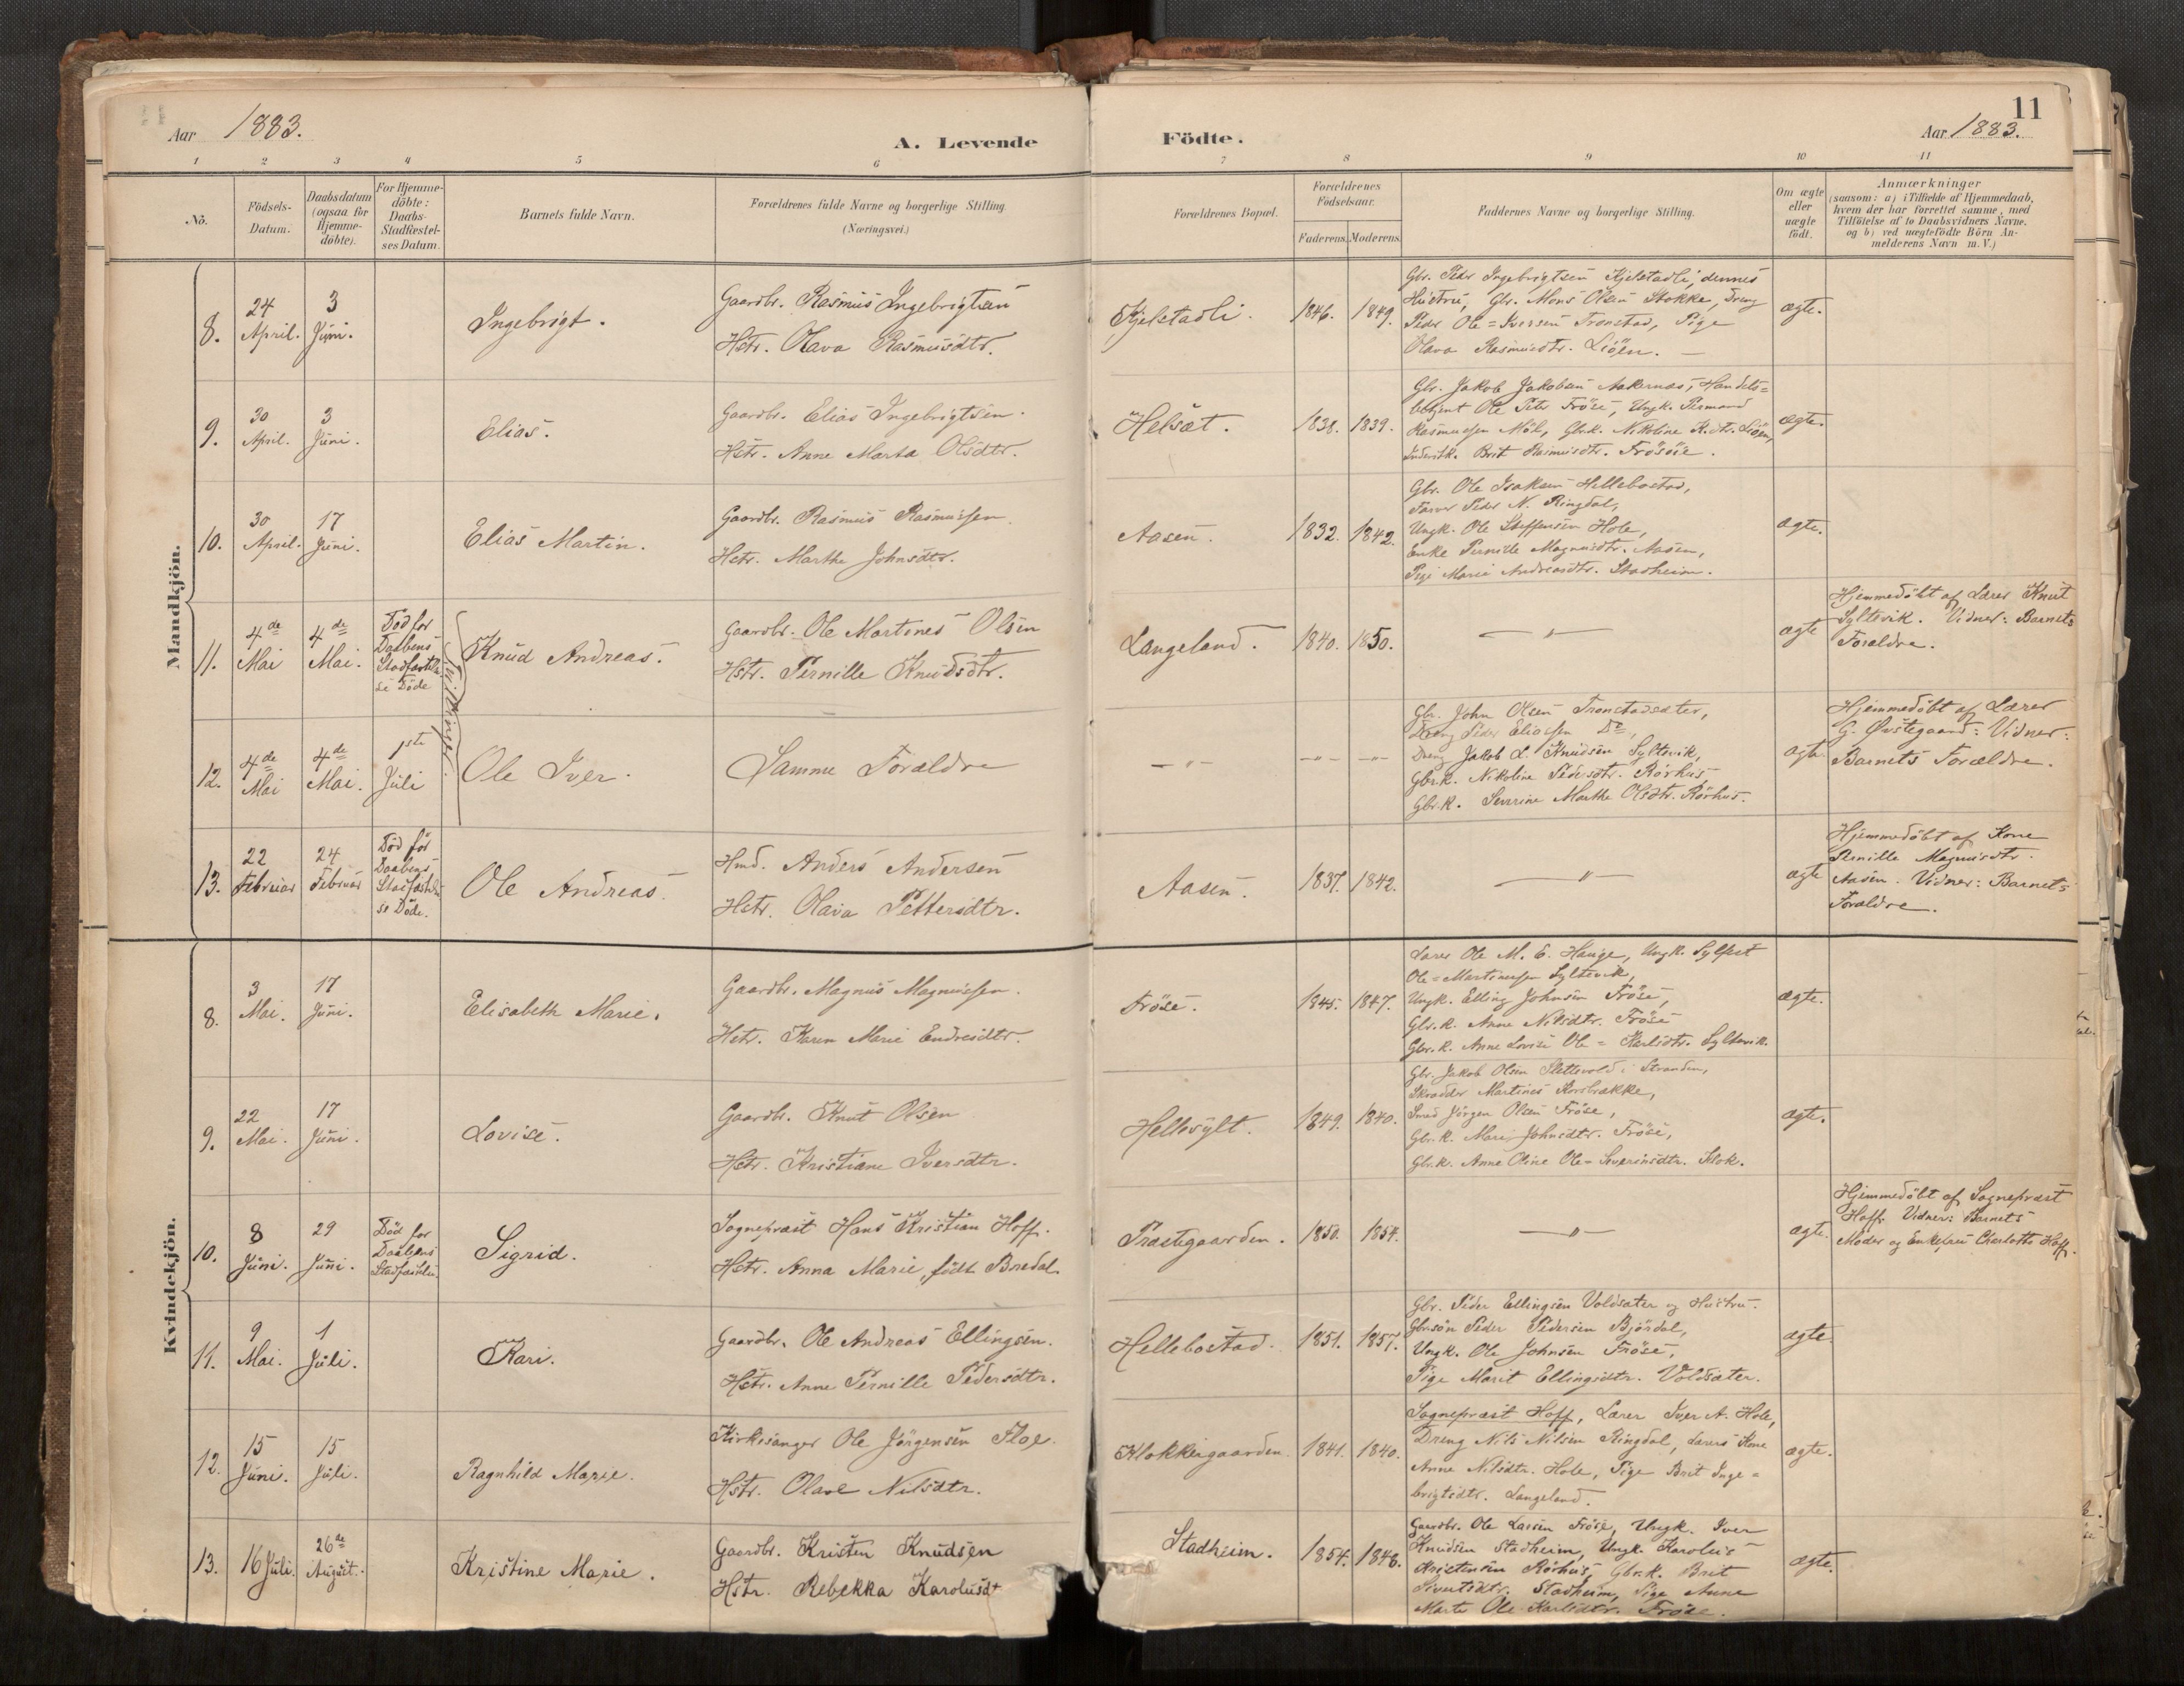 11
Aar 1883.
A. Levende Födte.
Aar 1883.
1 2 3 4 5 6 7 8 9 10 11
No.
Födsels-
Datum.
Daabsdatum
(ogsaa for
Hjemme-
döbte).
For Hjemme-
döbte:
Daabs-
Stadfæstel-
ses Datum.
Barnets fulde Navn.
Forældrenes fulde Navne og borgerlige Stilling
(Næringsvei.)
Forældrenes Bopæl.
Forældrenes
Födselsaar.
Faderens. Moderens.
Faddernes Navne og borgerlige Stilling.
Om ægte
eller
uægte
födt.
Anmærkninger
(saasom: a) i Tilfælde af Hjemmedaab,
hvem der har forrettet samme, med
Tilföielse af to Daabsvidners Navne,
og b) ved uægtefödte Börn An-
melderens Navn m. V.)
Mandkjön.
8.
24
April.
3
Juni.
Ingebrigt.
Gaardbr. Rasmus Ingebrigtsen
Hstr. Olava Rasmusdtr.
Kjelstadli.
1846. 1849.
Gbr. Peder Ingebrigtsen Kjelstadli, dennes
Hustru, Gbr. Mons Olsen Stokke, Dreng
Peder Ole=Iversen Tronstad, Pige
Olava Rasmusdtr. Liöen. —
ægte.
9.
30
April.
3
Juni.
Elias.
Gaardbr. Elias Ingebrigtsen.
Hstr. Anne Marta Olsdtr.
Helsæt.
1838. 1839.
Gbr. Jakob Jakobsen Aakernæs, Handels=
betjent Ole Peter Fröse, Ungk. Permand
Rasmussen Möl, Gbr.k. Nikoline R.dtr. Liöen,
Brit Rasmusdtr. Frösöie.
ægte.
10.
30
April.
17
Juni.
Elias Martin.
Gaardbr. Rasmus Rasmussen.
Hstr. Marthe Johnsdtr.
Aasen.
1832. 1842.
Gbr. Ole Isaksen Hellebostad,
Farver Peder N. Ringdal,
Ungk. Ole Steffensen Hole,
Enke Pernille Magnusdtr. Aasen,
Pige Marie Andreasdtr. Stadheim.
ægte.
11.
4de
Mai
4de
Mai.
Död for
Daabens
Stadfæstel-
se Döde
Knud Andreas.
Gaardbr. Ole Martines Olsen
Hstr. Pernille Knudsdtr.
Langeland.
1840. 1850.
— " —
ægte
Hjemmedöbt af Lærer Knut
Syltevik. Vidner: Barnets
Forældre.
12.
4de
Mai
4de
Mai.
1ste
Juli
Ole Iver.
Samme Forældre
— " —
— " — — " —
Gbr. John Olsen Tronstadsæter,
Dreng Peder Eliassen Do,
Dreng Jakob L. Knudsen Syltevik,
Gbr.k. Nikoline Pedersdtr. Rörhus
Gbr.k. Severine Marthe Olsdtr. Rörhus.
ægte
Hjemmedöbt af Lærer
G. Østegaard: Vidner:
Barnets Forældre.
13.
22
Februar
24
Februar
Död för
Daabens
Stadfæstel-
se Döde.
Ole Andreas.
Hmd. Anders Andersen
Hstr. Olava Pettersdtr.
Aasen.
1837. 1842.
— " —
ægte
Hjemmedöbt af Kone
Pernille Magnusdtr.
Aasen. Vidner: Barnets
Forældre.
Kvindekjön.
8.
3
Mai.
17
Juni.
Elisabeth Marie.
Gaardbr. Magnus Magnussen.
Hstr. Karen Marie Endresdtr.
Fröse.
1845. 1847.
Lærer Ole M. E. Hauge, Ungk. Sylfest
Ole=Martinussen Syltevik,
Ungk. Elling Johnsen Fröse,
Gbr.k. Anne Nilsdtr. Fröse
Gbr.k. Anne Lovise Ole=Karlsdtr. Syltevik.
ægte.
9.
22
Mai.
17
Juni.
Lovise.
Gaardbr. Knut Olsen
Hstr. Kristiane Iversdtr.
Hellesylt.
1849. 1840.
Gbr. Jakob Olsen Slettevold i Stranden,
Skrædder Martines Korsbrække,
Smed Jörgen Olsen Fröse,
Gbr.k. Mari Johnsdtr. Fröse,
Gbr.k. Anne Oline Ole=Severinsdtr. Klok.
ægte.
10.
8
Juni.
29
Juni.
Död for
Daabens
Stadfæstelse
Sigrid.
Sogneprest Hans Kristian Hoff.
Hstr. Anna Marie, födt Bredal.
Præstegaarden.
1850. 1854.
— " —
ægte.
Hjemmedöbt af Sogneprest
Hoff. Vidner: Barnets
Moder og Enkefru Charlotte Hoff.
11.
9
Mai.
1
Juli.
Kari.
Gaardbr. Ole Andreas Ellingsen.
Hstr. Anne Pernille Pedersdtr.
Hellebostad.
1851. 1857.
Gbr. Peder Ellingsen Voldsæter og Hustru.
Gbrsön Peder Pedersen Björdal,
Ungk. Ole Johnsen Fröse,
Pige Marit Ellingsdtr. Voldsæter.
ægte.
12.
15
Juni.
15
Juli.
Ragnhild Marie.
Kirkesanger Ole Jörgensen Floe.
Hstr. Olave Nilsdtr.
Klokkergaarden.
1841. 1840.
Sogneprest Hoff, Lærer Iver A. Hole,
Dreng Nils Nilsen Ringdal, Lærers Kone
Anne Nilsdtr. Hole, Pige Brit Inge=
brigtsdtr. Langeland.
ægte.
13.
16 Juli.
26de
August.
Kristine Marie.
Gaardbr. Kristen Knudsen
Hstr. Rebekka Karolusdt
Stadheim.
1854. 1846.
Gaardbr. Ole Larsen Fröse, Ungk. Iver
Knudsen Stadheim, Ungk. Karolus
Kristensen Rörhus, Gbr.k. Brit
Sivertsdtr. Stadheim, Pige Anne
Marte Ole-Karlsdtr. Fröse.
ægte.